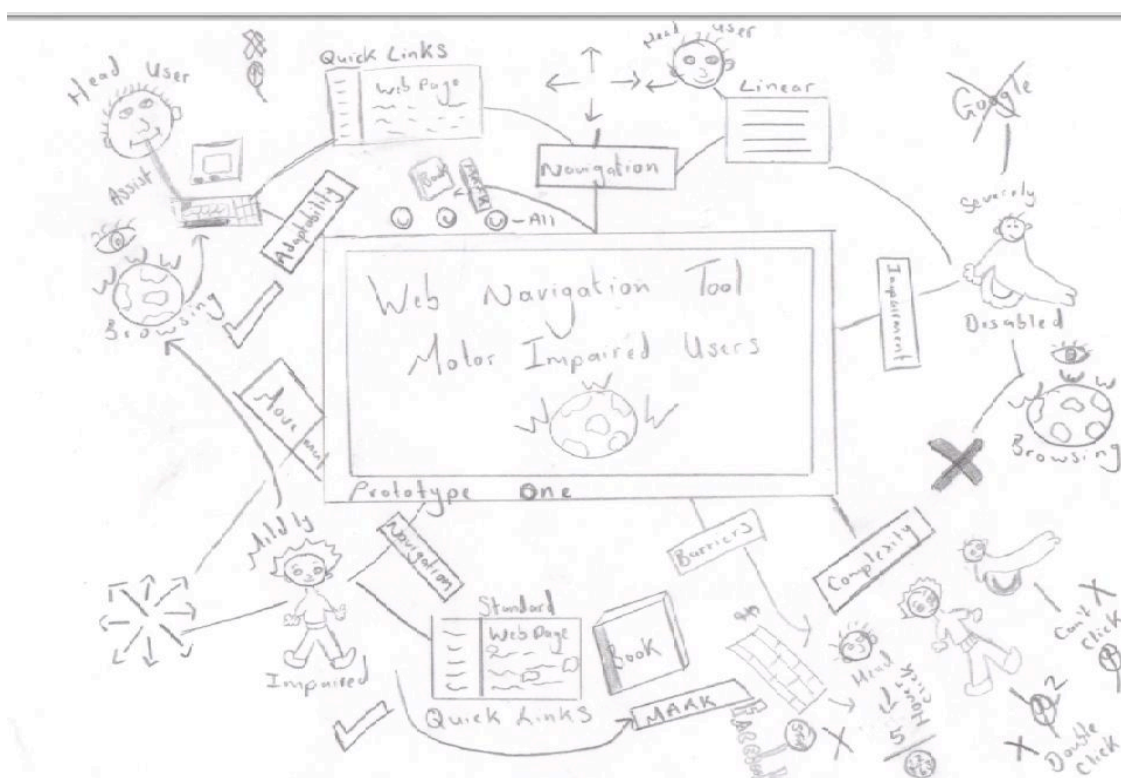 Quick Links
Web Page
Head User
Assist
Head User
Linear
Google
Navigation
Book
Mark
All
Adaptability
Browsing
Severely
Disabled
Impairment
Web Navigation Tool
Motor Impaired Users
W W W
Prototype One
W W W
W W W
Browsing
Movement
Mildly
Impaired
Navigation
Standard
Web Page
Quick Links
Book
MARK
Barriers
Complexity
Head
Hover
click
5
Can't
Click
2
Double
Click